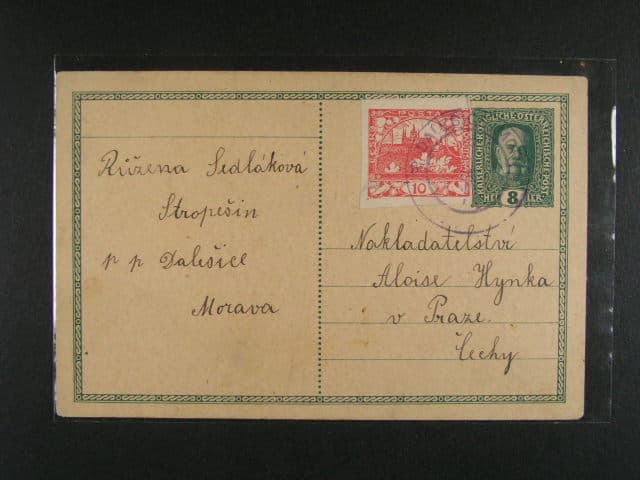 Růžena Sedláková
Stropešin
p p Dalešice
Morava
POŠTA
10
KAISERLICHE KÖNIGLICHE ÖSTERREICHISCHE POST
8
HELLER
Nakladatelství
Aloise Hynka
v Praze.
Čechy